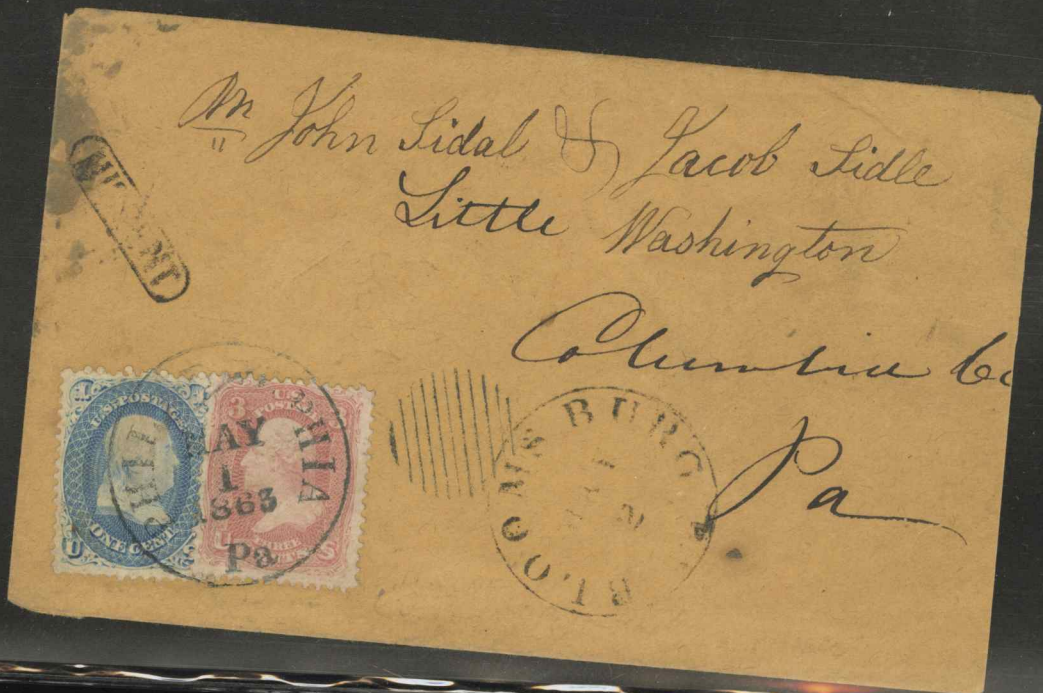 Mr John Sidal & Jacob Sidle
Little Washington
Columbia Co
Pa
MISSENT
1 1
U.S. POSTAGE
ONE CENT
U
3
U.S.
POSTAGE
THREE
CENTS
U S
PHILADELPHIA
MAY
1
1863
Pa
BLOOMSBURG